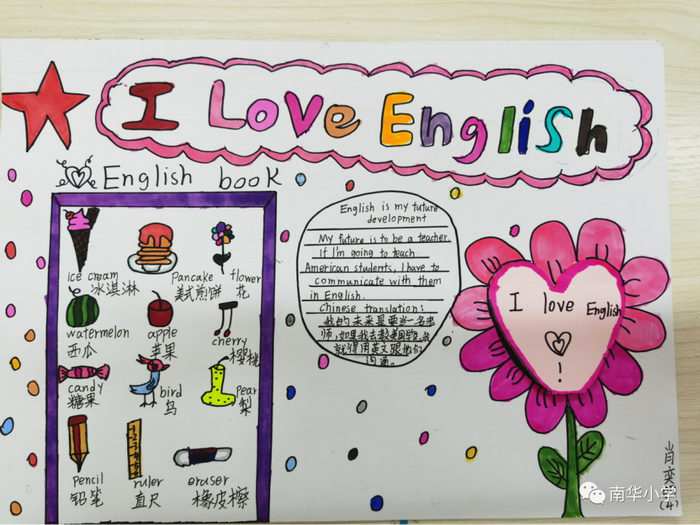 I Love English
English book
ice cream
冰淇淋
Pancake
美式煎饼
flower
花
watermelon
西瓜
apple
苹果
cherry
樱桃
candy
糖果
bird
鸟
pear
梨
pencil
铅笔
ruler
直尺
eraser
橡皮擦
English is my future
development
My future is to be a teacher.
if I'm going to teach
American students, I have to
communicate with them
in English.
Chinese translation:
我的未来是要当一名老
师,如果我去教美国学生,我
就得用英文跟他们
沟通。
I love English
!
肖奕
(4)
南华小学